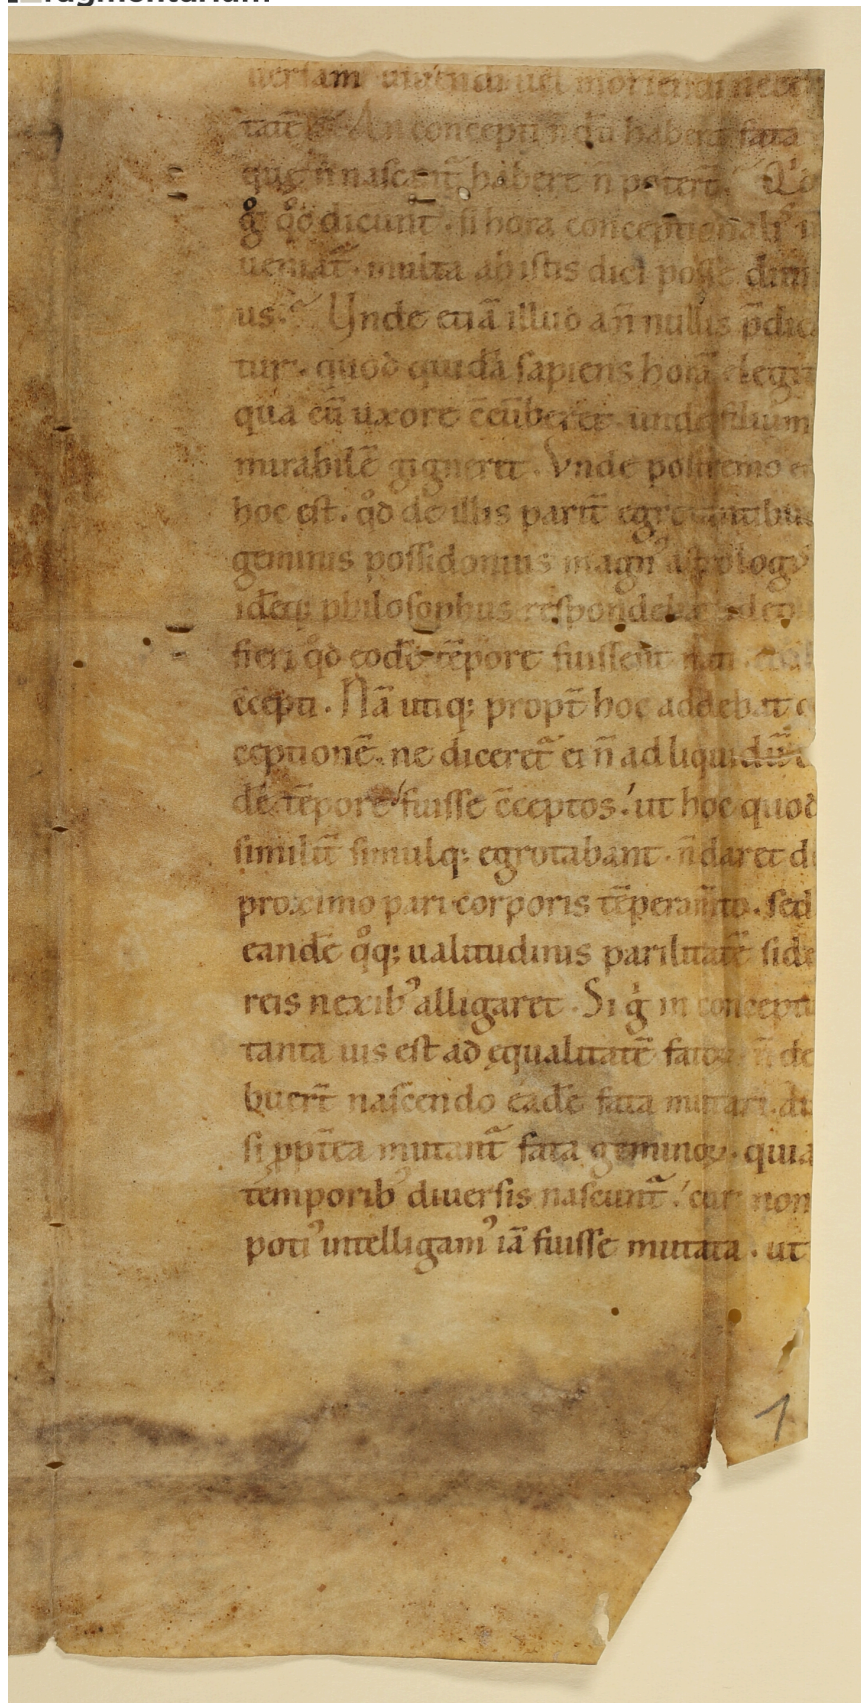 uersam uiuendi uel moriendi nece
tatē. An concepti n̄dū habent fata
quę n̄ nascant᷑ habere n̄ poterū. Quo
g̊ qd̊ dicunt. si hora conceptionalis in
ueniat᷑. multa ab istis dici posse diui
us. Unde etiā illud a nnullis p̄dica
tur. quod quidā sapiens horā elegit
qua cū uxore c̄cūberet. unde filium
mirabilē gigneret. Vnde postremo
hoc est. qd̊ de illis parit̄ egrotantibus
geminis possidonius magn᷒ astrologus
idēq; philosophus respondebat. ideo
fieri qd̊ eodē tēpore fuissent
c̄cepti. Nā utiq; propt̄ hoc addebat c
ceptionē. ne diceret᷑ ei n̄ ad liquidū
dē tēpore fuisse c̄ceptos. ut hoc quod
similit̄ simulq; egrotabant. n̄ daret d
proximo pari corporis tēperam̄to. sed
eandē qq̊; ualitudinis parilitatē side
reis nexib᷒ alligaret. Si g̊ in conceptu
tanta uis est ad ęqualitatē fatoꝝ n̄ de
buer̄t nascendo eadē fata mutari. aut
si ꝓpt̄ea mutant᷑ fata geminoꝝ. quia
temporib᷒ diuersis nascunt᷑. cur non
poti᷒ intelligam᷒ iā fuisse mutata. ut
1